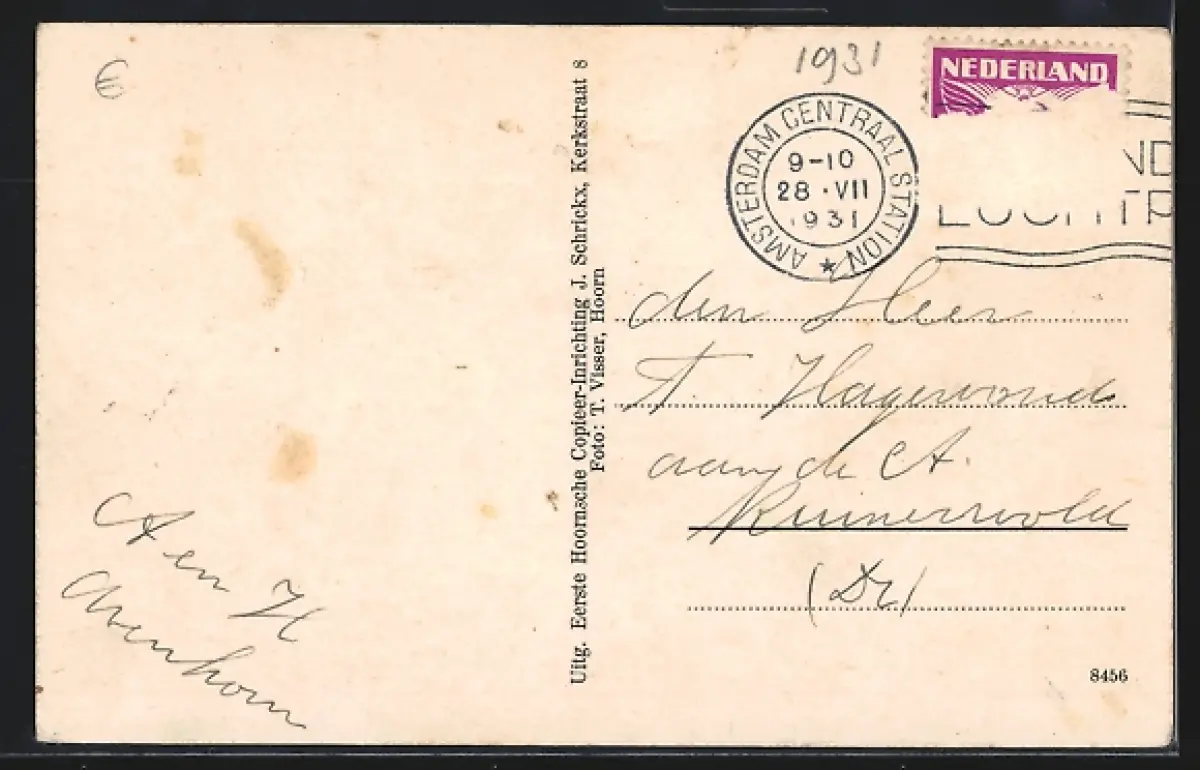 €
A en H
Avenhorn
Uitg. Eerste Hoornsche Copieer-Inrichting J. Schrickx, Kerkstraat 8
Foto: T. Visser, Hoorn
1931
NEDERLAND
AMSTERDAM CENTRAAL STATION
9-10
28 · VII
1931
den Heer
T. Hagewoud
aan de A.
Ruinerwold
(Dr)
8456